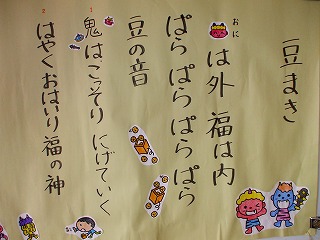 豆まき
おに
は外 福は内
ぱら ぱら ぱら ぱら
豆の音
1
鬼は、こっそり にげていく
2
はやく おはいり 福の神